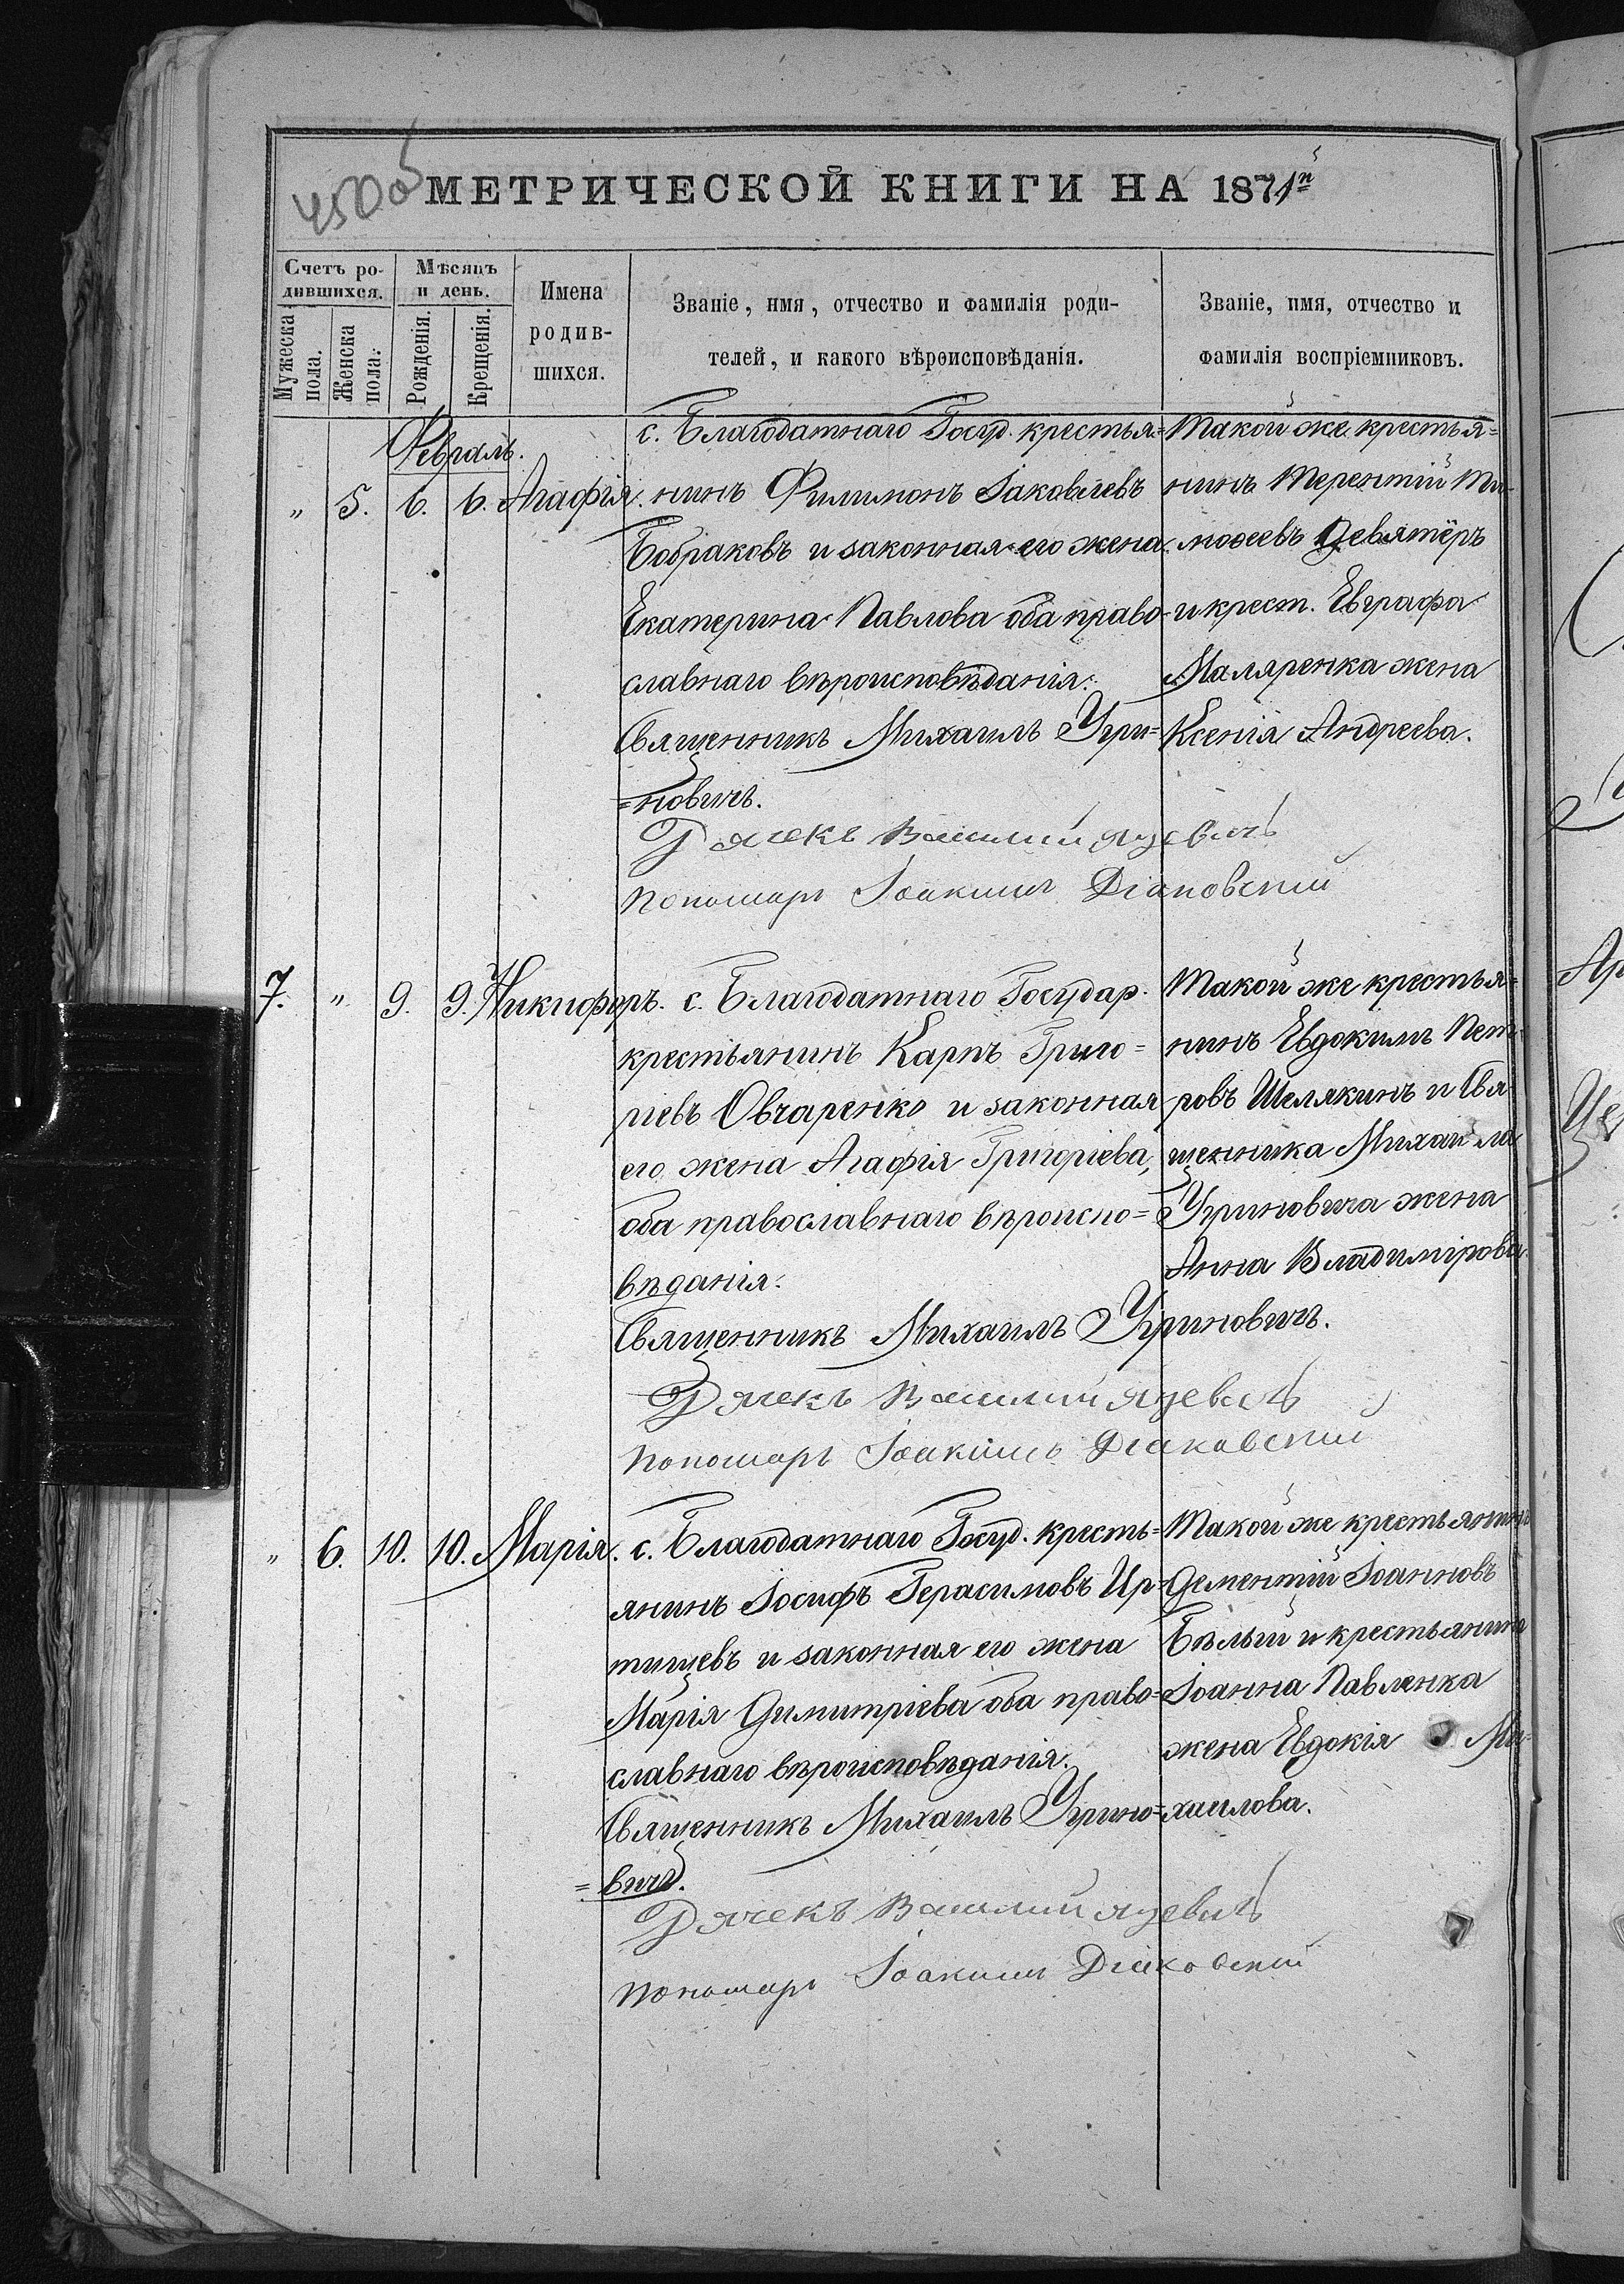 450 об
МЕТРИЧЕСКОЙ КНИГИ НА 1871й
Счетъ ро-
дившихся.
Мужеска
пола.
Женска
пола.
Мѣсяцъ
и день.
Рожденія.
Крещенія.
Имена
родив-
шихся.
Званіе, имя, отчество и фамилія роди-
телей, и какого вѣроисповѣданія.
Званіе, имя, отчество и
фамилія воспріемниковъ.
Февраль.
" 5. 6. 6. Агафія.
с. Благодатнаго Госуд. крестья=
нинъ Филимонъ Іаковлевъ
Бобраковъ и законная его жена
Екатерина Павлова оба право-
славнаго вѣроисповѣданія.
Священникъ Михаилъ Угри=
=новичъ.
Дячекъ Василий Язевичъ
Пономарь Іоакимъ Діаковский
Такой же крестья=
нинъ Терентій Ти-
моѳеевъ Девятёръ
и крест. Евграфа
Маляренка жена
Ксенія Андреева.
7. " 9. 9. Никифоръ.
с. Благодатнаго Государ.
крестьянинъ Карпъ Григо=
ріевъ Овчаренко и законная
его жена Агафія Григоріева,
оба православнаго вѣроиспо=
вѣданія.
Священникъ Михаилъ Угриновичъ.
Дячекъ Василий Язевичъ
Пономарь Іоакимъ Діаковский
Такой же крестья=
нинъ Евдокимъ Пет-
ровъ Шелякинъ и Свя-
щенника Михаила
Угриновича жена
Анна Владимірова.
" 6. 10. 10. Марія.
с. Благодатнаго Госуд. кресть=
янинъ Іосифъ Герасимовъ Ир-
тищевъ и законная его жена
Марія Димитріева оба право=
славнаго вѣроисповѣданія.
Священникъ Михаилъ Угрино=
=вичъ.
Дячекъ Василий Язевичъ
Пономарь Іоакимъ Діаковский
Такой же крестьянинъ
Дементій Іоанновъ
Бѣлый и крестьянина
Іоанна Павленка
жена Евдокія Ми-
хаилова.